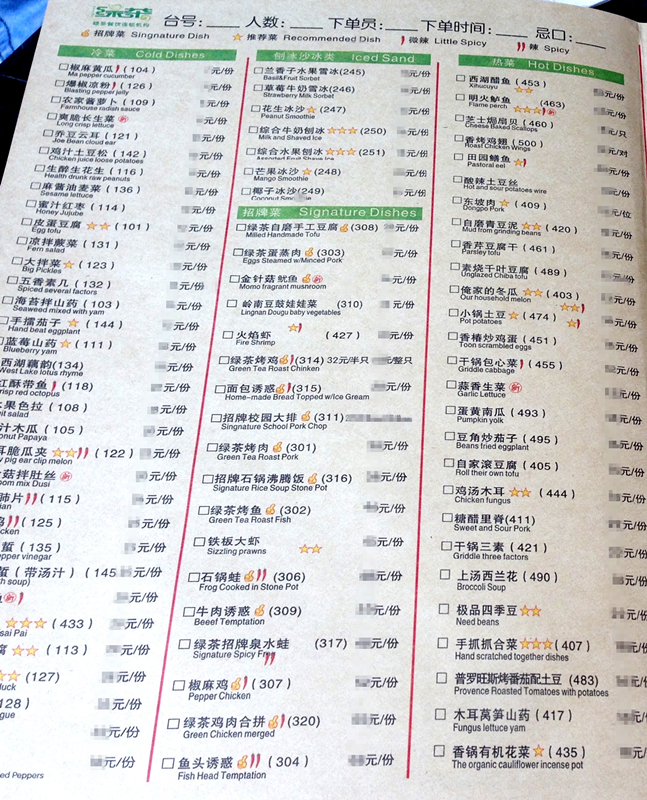 绿茶
台号: 人数: 下单员: 下单时间: 忌口:
招牌菜 Singnature Dish 推荐菜 Recommended Dish 微辣 Little Spicy 辣 Spicy
冷菜 Cold Dishes
椒麻黄瓜 (104) 元/份
Ma pepper cucumber
爆椒凉粉 (126) 元/份
Blasting pepper jelly
农家酱萝卜 (109) 元/份
Farmhouse radish sauce
爽脆长生菜 元/份
Long crisp lettuce
乔豆云耳 (121) 元/份
Joe Bean cloud ear
鸡汁土豆松 (142) 元/份
Chicken juice loose potatoes
生醉生花生 (116) 元/份
Health drunk raw peanuts
麻酱油麦菜 (136) 元/份
Sesame lettuce
蜜汁红枣 (114) 元/份
Honey Jujube
皮蛋豆腐 (101) 元/份
Egg tofu
凉拌蕨菜 (131) 元/份
Fern salad
大拌菜 (123) 元/份
Big Pickles
五香素几 (132) 元/份
Spiced several factors
海苔拌山药 (103) 元/份
Seaweed mixed with yam
手擂茄子 (144) 元/份
Hand beat eggplant
蓝莓山药 (111) 元/份
Blueberry yam
西湖藕韵(134) 元/份
West Lake lotus rhyme
红酥带鱼 (118) 元/份
crisp red octopus
果色拉 (108) 元/份
uit salad
汁木瓜 (105) 元/份
onut Papaya
耳脆瓜夹 (122) 元/份
w pig ear clip melon
菇拌肚丝 元/份
oom mix Dusi
肺片 (115) 元/份
cken
(125) 元/份
chicken
蜇 (135) 元/份
epper vinegar
蜇 (带汤汁) (145 元/份
th soup)
鱼 元/份
(433) 元/份
sai Pai
腐 (113) 元/份
(127) 元/份
duck
(128) 元/份
gue
元/份
元/份
ed Peppers
刨冰沙冰类 Iced Sand
兰香子水果雪冰(245) 元/份
Basil&Fruit Sorbet
草莓牛奶雪冰(246) 元/份
Strawberry Milk Sorbet
花生冰沙 (247) 元/份
Peanut Smoothie
综合牛奶刨冰 (250) 元/份
Milk and Shaved Ice
综合水果刨冰 (251) 元/份
Assorted Fruit Shave Ice
芒果冰沙 (248) 元/份
Mango Smoothie
椰子冰沙(249) 元/份
Coconut Smoothie
招牌菜 Signature Dishes
绿茶自磨手工豆腐 (308) 元/份
Milled Handmade Tofu
绿茶蛋蒸肉 (303) 元/份
Eggs Steamed w/Minced Pork
金针菇鱿鱼 元/份
Momo fragrant musnroom
岭南豆豉娃娃菜 (310) 元/份
Lingnan Dougu baby vegetables
火焰虾 (427) 元/份
Fire Shrimp
绿茶烤鸡 (314) 32元/半只 元/整只
Green Tea Roast Chinken
面包诱惑 (315) 元/份
Home-made Bread Topped w/Ice Gream
招牌校园大排 (311)
Singnature School Pork Chop
绿茶烤肉 (301) 元/份
Green Tea Roast Pork
招牌石锅沸腾饭 (316) 元/份
Signature Rice Soup Stone Pot
绿茶烤鱼 (302) 元/份
Green Tea Roast Fish
铁板大虾 元/份
Sizzling prawns
石锅蛙 (306) 元/份
Frog Cooked in Stone Pot
牛肉诱惑 (309) 元/份
Beeef Temptation
绿茶招牌泉水蛙 (317) 元/份
Signature Spicy Frog
椒麻鸡 (307) 元/份
Pepper Chicken
绿茶鸡肉合拼 (320) 元/份
Green Chicken merged
鱼头诱惑 (304) 元/份
Fish Head Temptation
热菜 Hot Dishes
西湖醋鱼 (453) 元/份
Xihucuyu
明火鲈鱼 (463) 元/份
Flame perch
芝士焗扇贝 (460) 元/只
Cheese Baked Scallops
香烤鸡翅 (500) 元/对
Roast Chicken Wings
田园鳝鱼
Pastoral eel
酸辣土豆丝 元/份
Hot and sour potatoes wire
东坡肉 (409) 元/位
Dongpo Pork
自磨青豆泥 (420) 元/份
Mud from grinding beans
香芹豆腐干 (461) 元/份
Parsley tofu
素烧千叶豆腐 (489) 元/份
Unglazed Chiba tofu
俺家的冬瓜 (403) 元/份
Our household melon
小锅土豆 (474) 元/份
Pot potatoes
香椿炒鸡蛋 (451) 元/份
Toon scrambled eggs
干锅包心菜 (455) 元/份
Griddle cabbage
蒜香生菜 元/份
Garlic Lettuce
蛋黄南瓜 (493) 元/份
Pumpkin yolk
豆角炒茄子 (495) 元/份
Beans fried eggplant
自家滚豆腐 (405) 元/份
Roll their own tofu
鸡汤木耳 (444) 元/份
Chicken fungus
糖醋里脊(411) 元/份
Sweet and Sour Pork
干锅三素 (421) 元/份
Griddle three factors
上汤西兰花 (490) 元/份
Broccoli Soup
极品四季豆 元/份
Need beans
手抓抓合菜 (407) 元/份
Hand scratched together dishes
普罗旺斯烤番茄配土豆 (483) 元/份
Provence Roasted Tomatoes with potatoes
木耳莴笋山药 (417) 元/份
Fungus lettuce yam
香锅有机花菜 (435) 元/份
The organic cauliflower incense pot